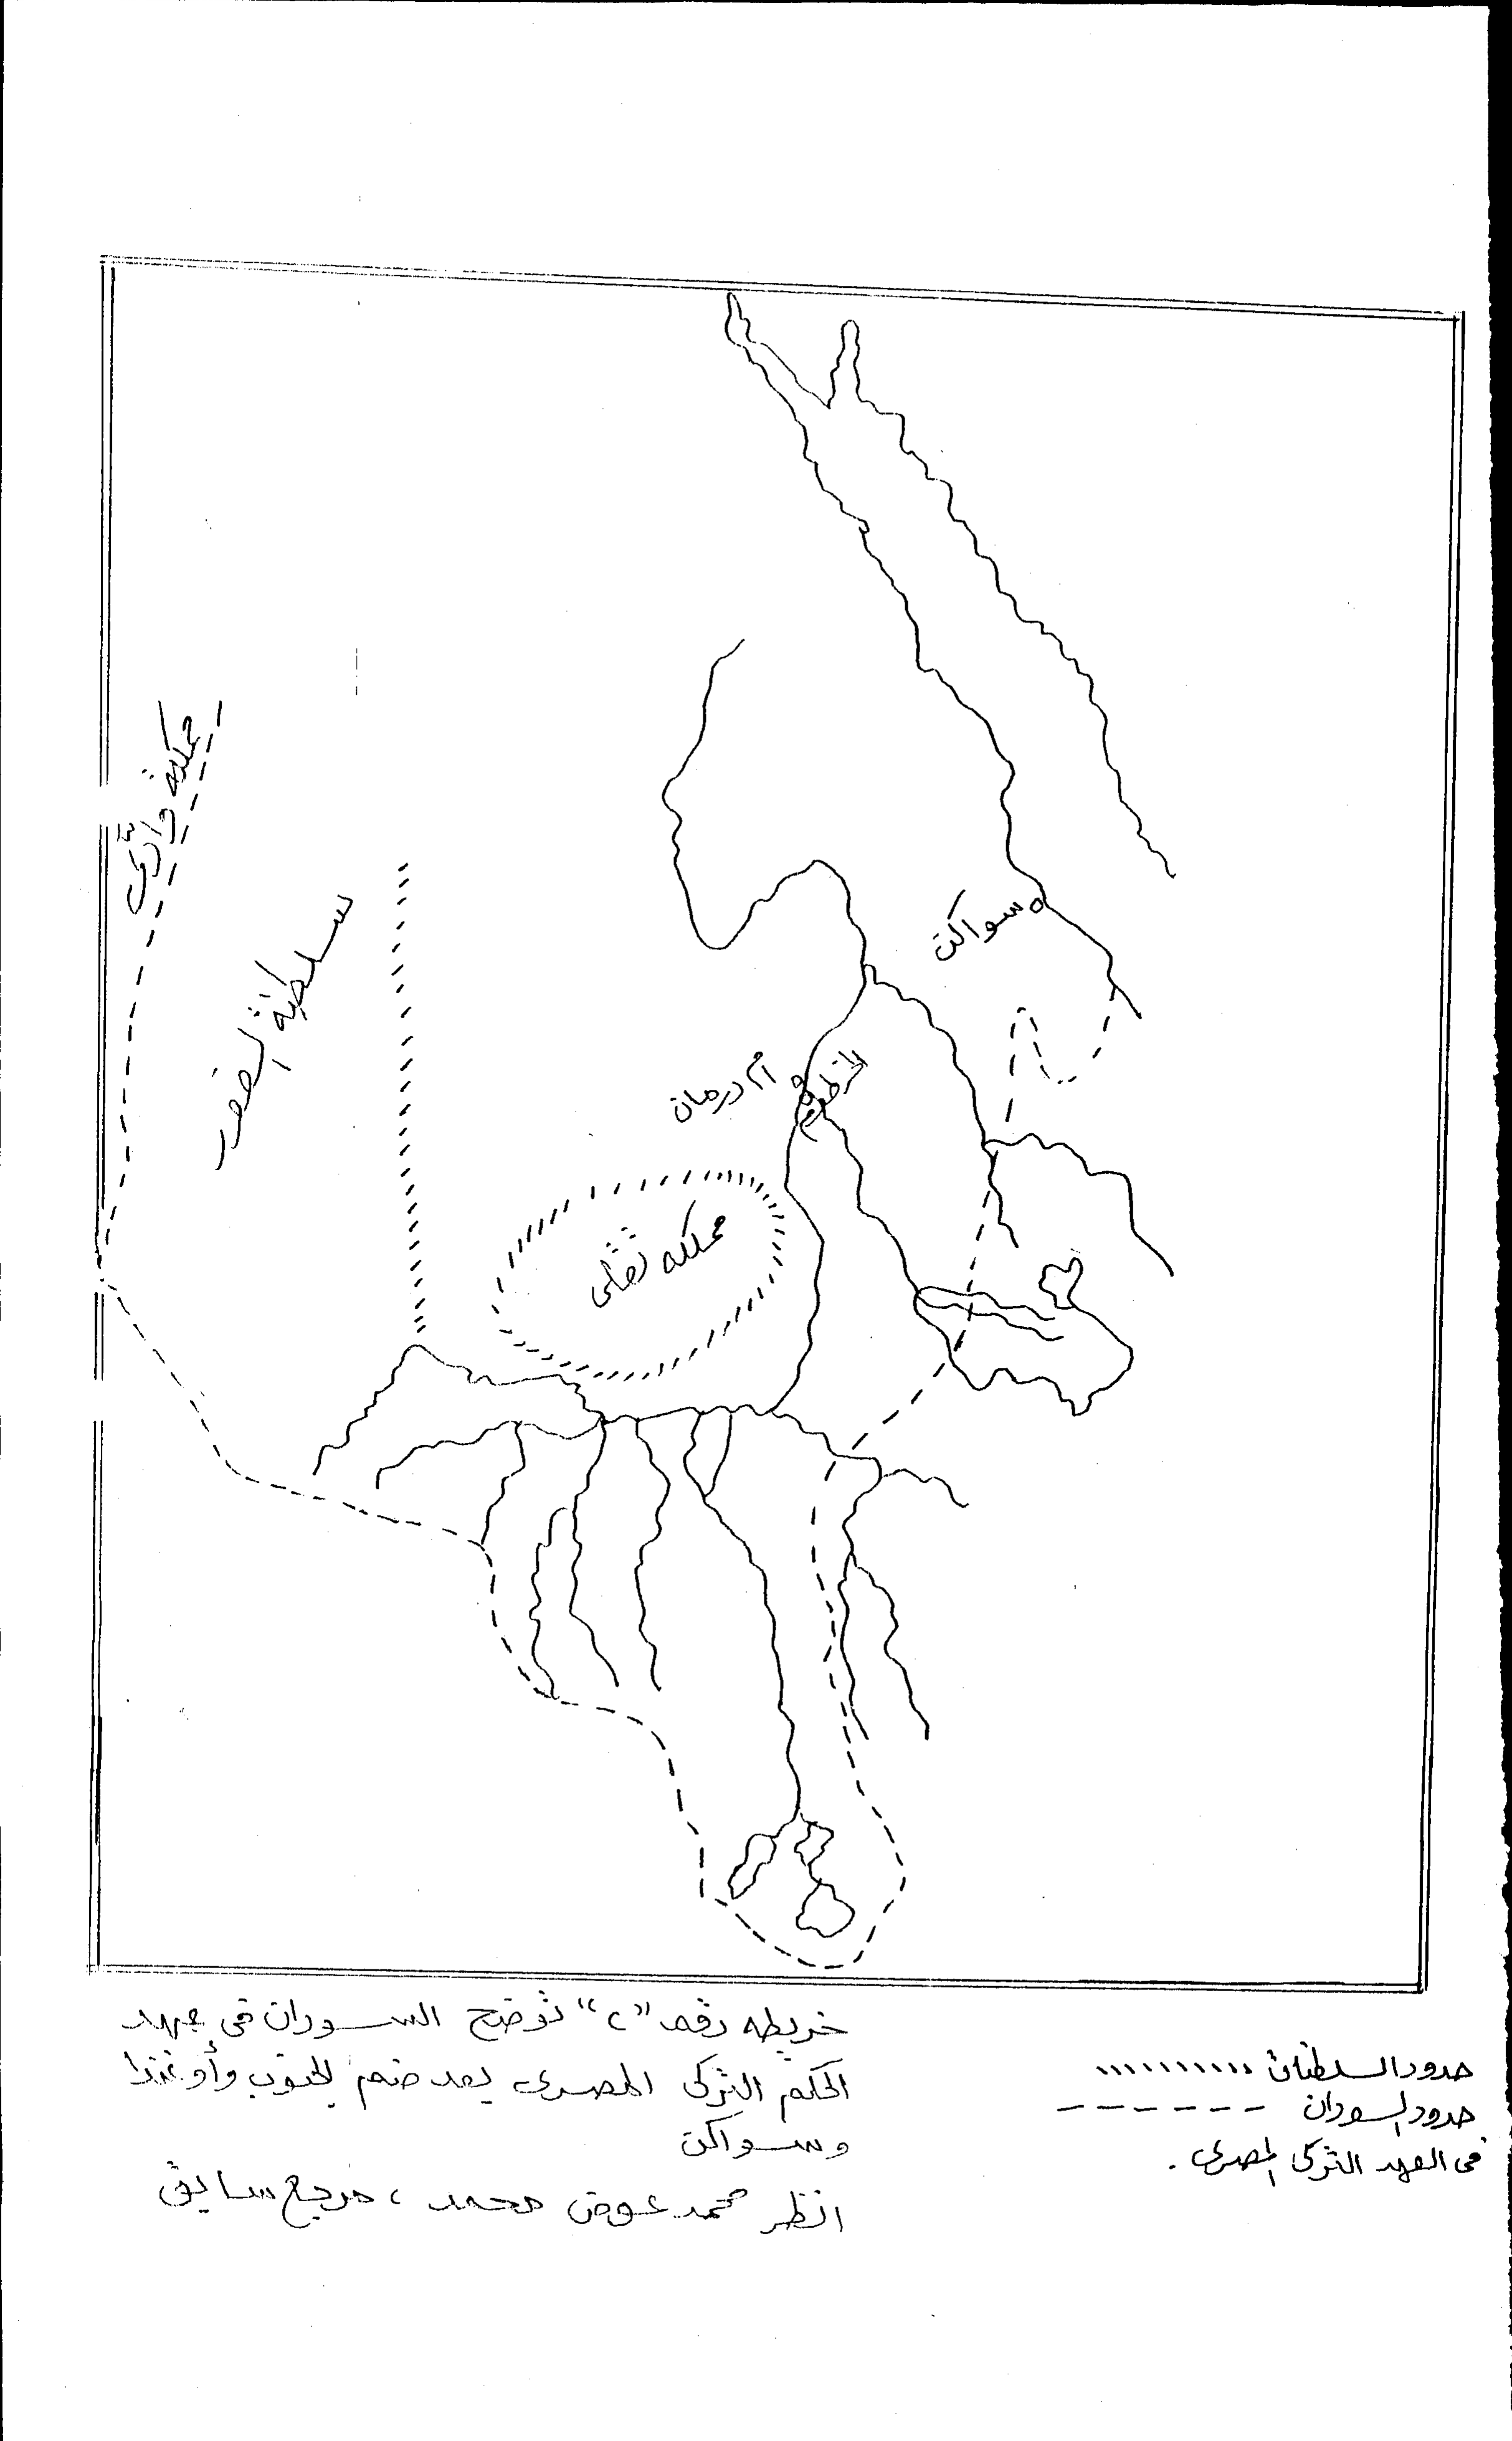 مملكة وادّاى
سلطنة الفور
سواكن
أم درمان
الخرطوم
مملكه تقلى
خريطه رقم "٢" توضح السودان فى عهد
الحكم التركى المصرى بعد ضم الجنوب وأوغندا
وسواكن
انظر محمد عوض محمد ، مرجع سابق
حدود السلطنات
حدود السودان
فى العهد التركى المصرى .